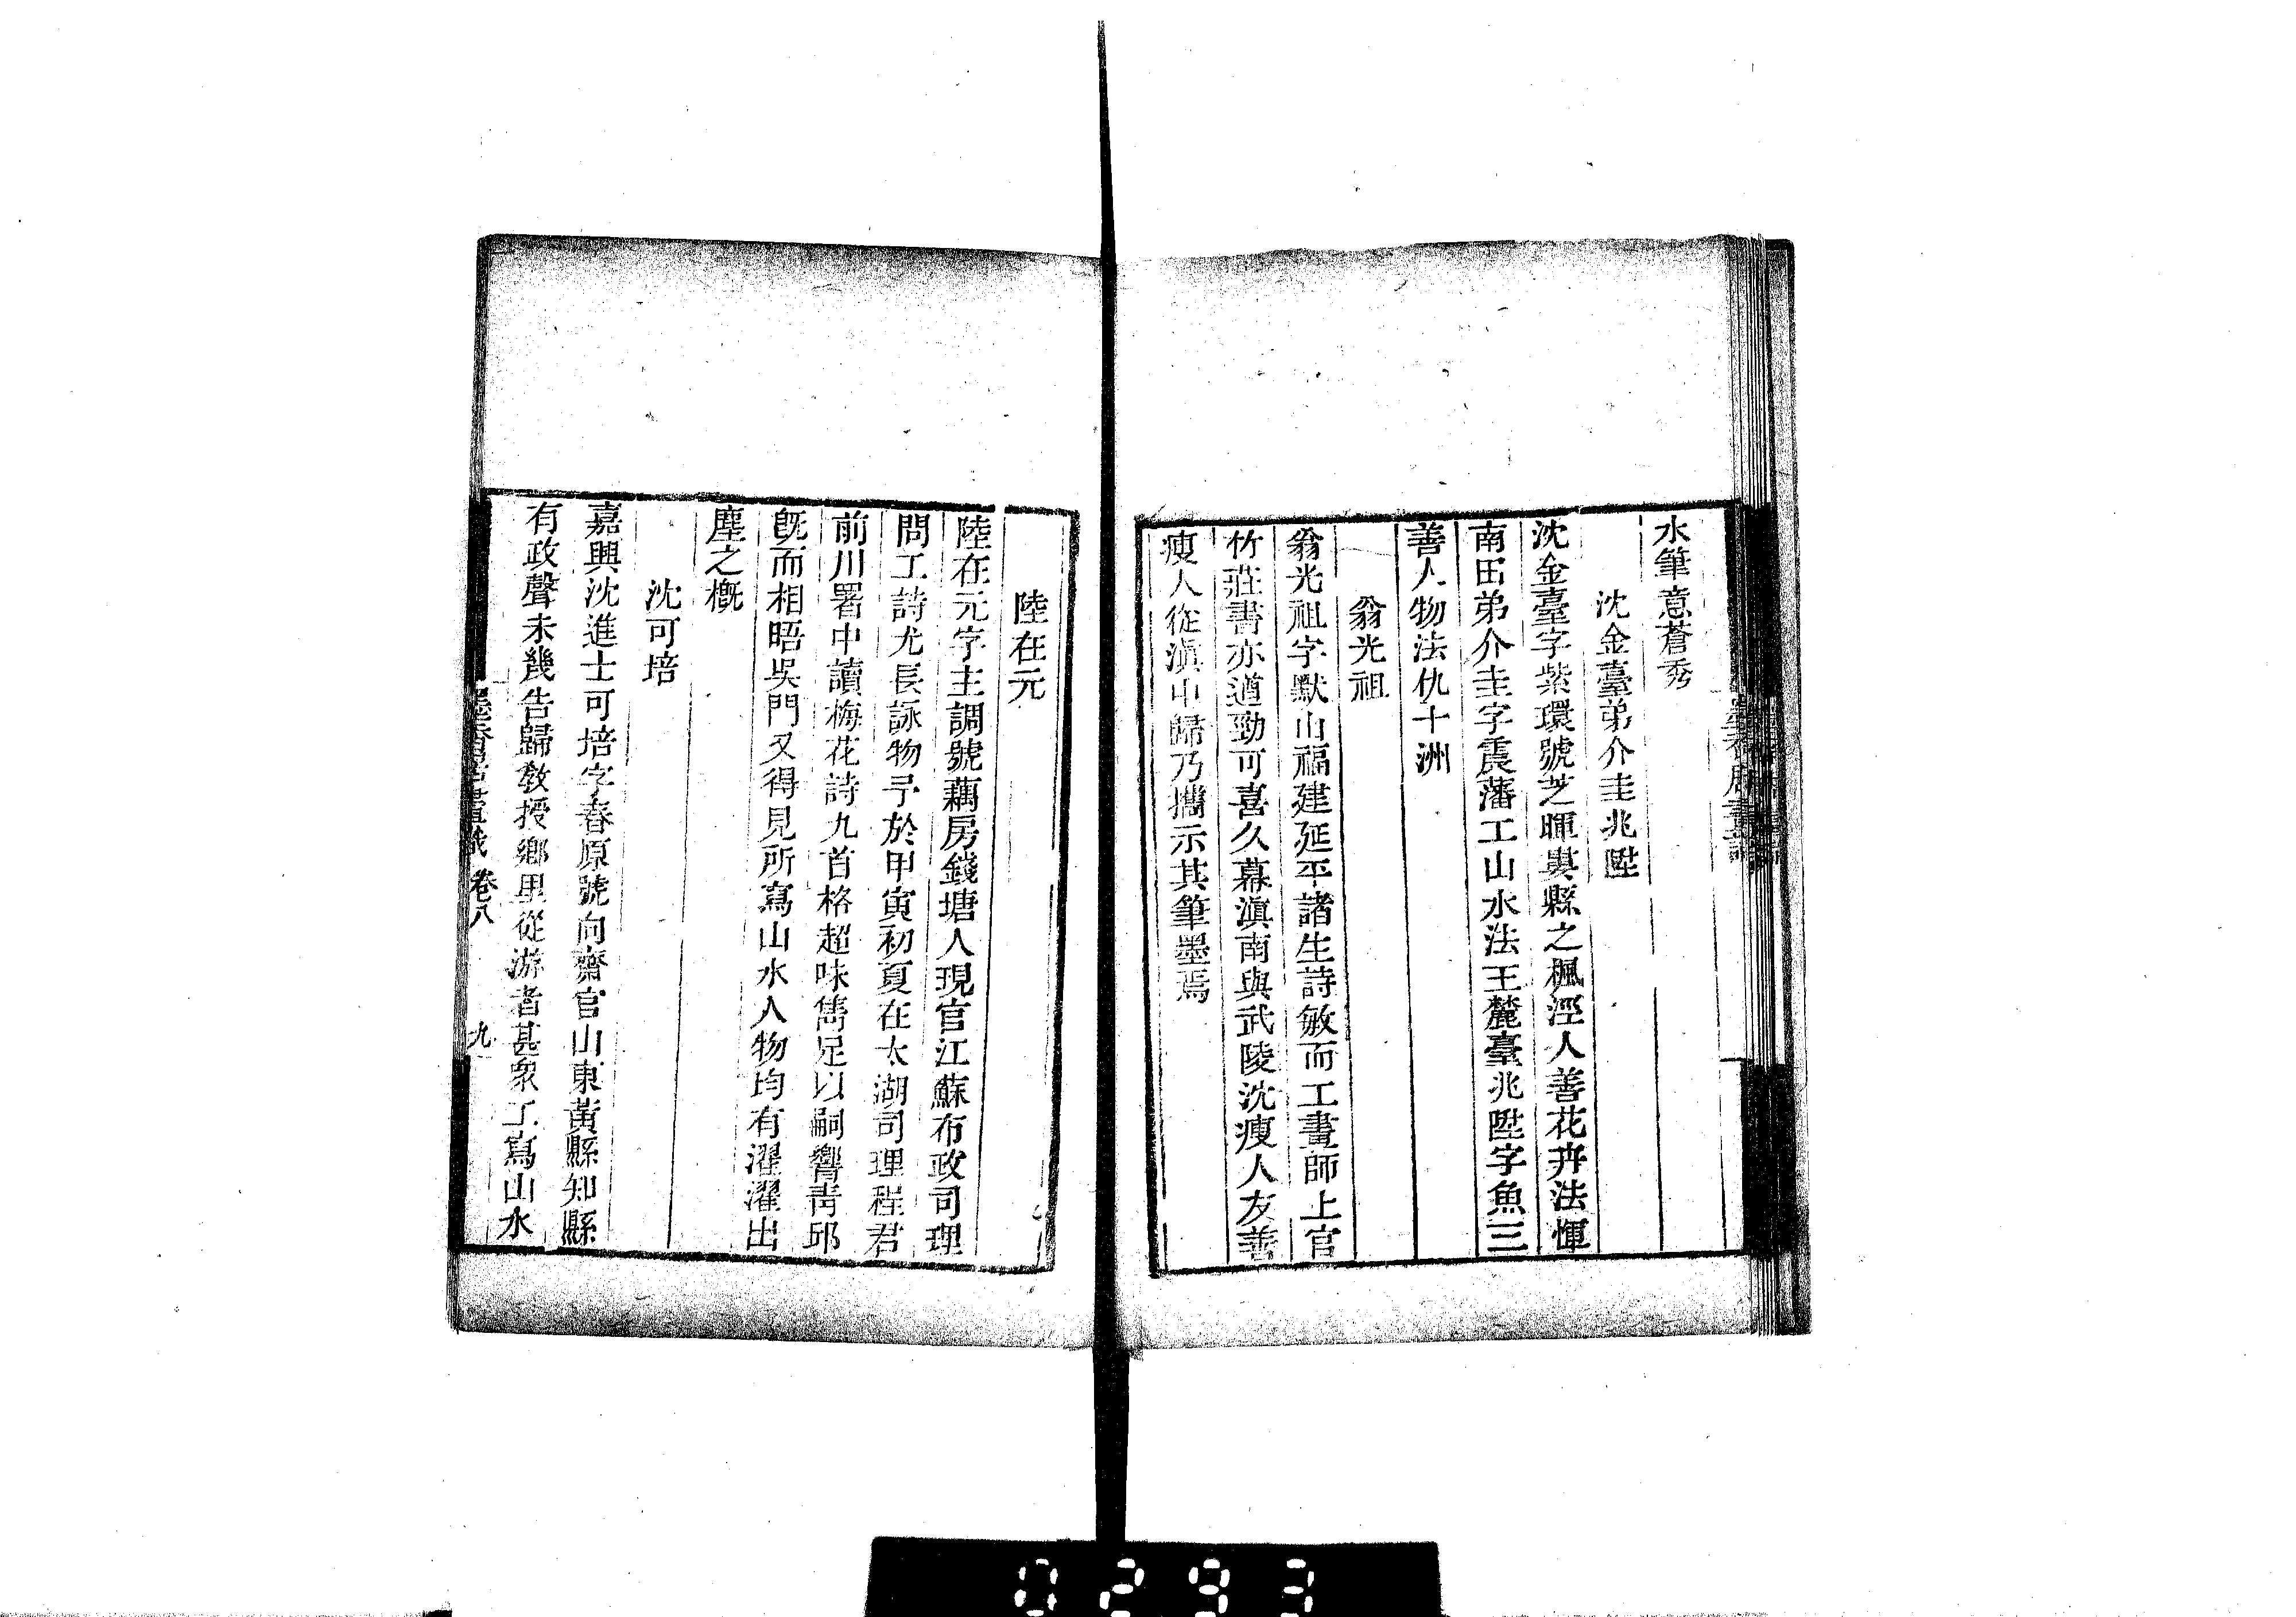 水筆意蒼秀
沈金臺弟介圭兆陞
沈金臺字紫環號芝暉婁縣之楓涇人善花卉法惲
南田弟介圭字震藩工山水法王麓臺兆陞字魚三
善人物法仇十洲
翁光祖
翁光祖字默山福建延平諸生詩敏而工畫師上官
竹莊書亦遒勁可喜久幕滇南與武陵沈瘦人友善
瘦人從滇中歸乃攜示其筆墨焉
陸在元
陸在元字主調號藕房錢塘人現官江蘇布政司理
問工詩尤長詠物予於甲寅初夏在太湖司理程君
前川署中讀梅花詩九首格超味雋足以嗣響青邱
旣而相晤吳門又得見所寫山水人物均有濯濯出
塵之槪
沈可培
嘉興沈進士可培字春原號向齋官山東黃縣知縣
有政聲未幾告歸敎授鄉里從游者甚衆工寫山水
墨香居畫識 卷八 九
0293